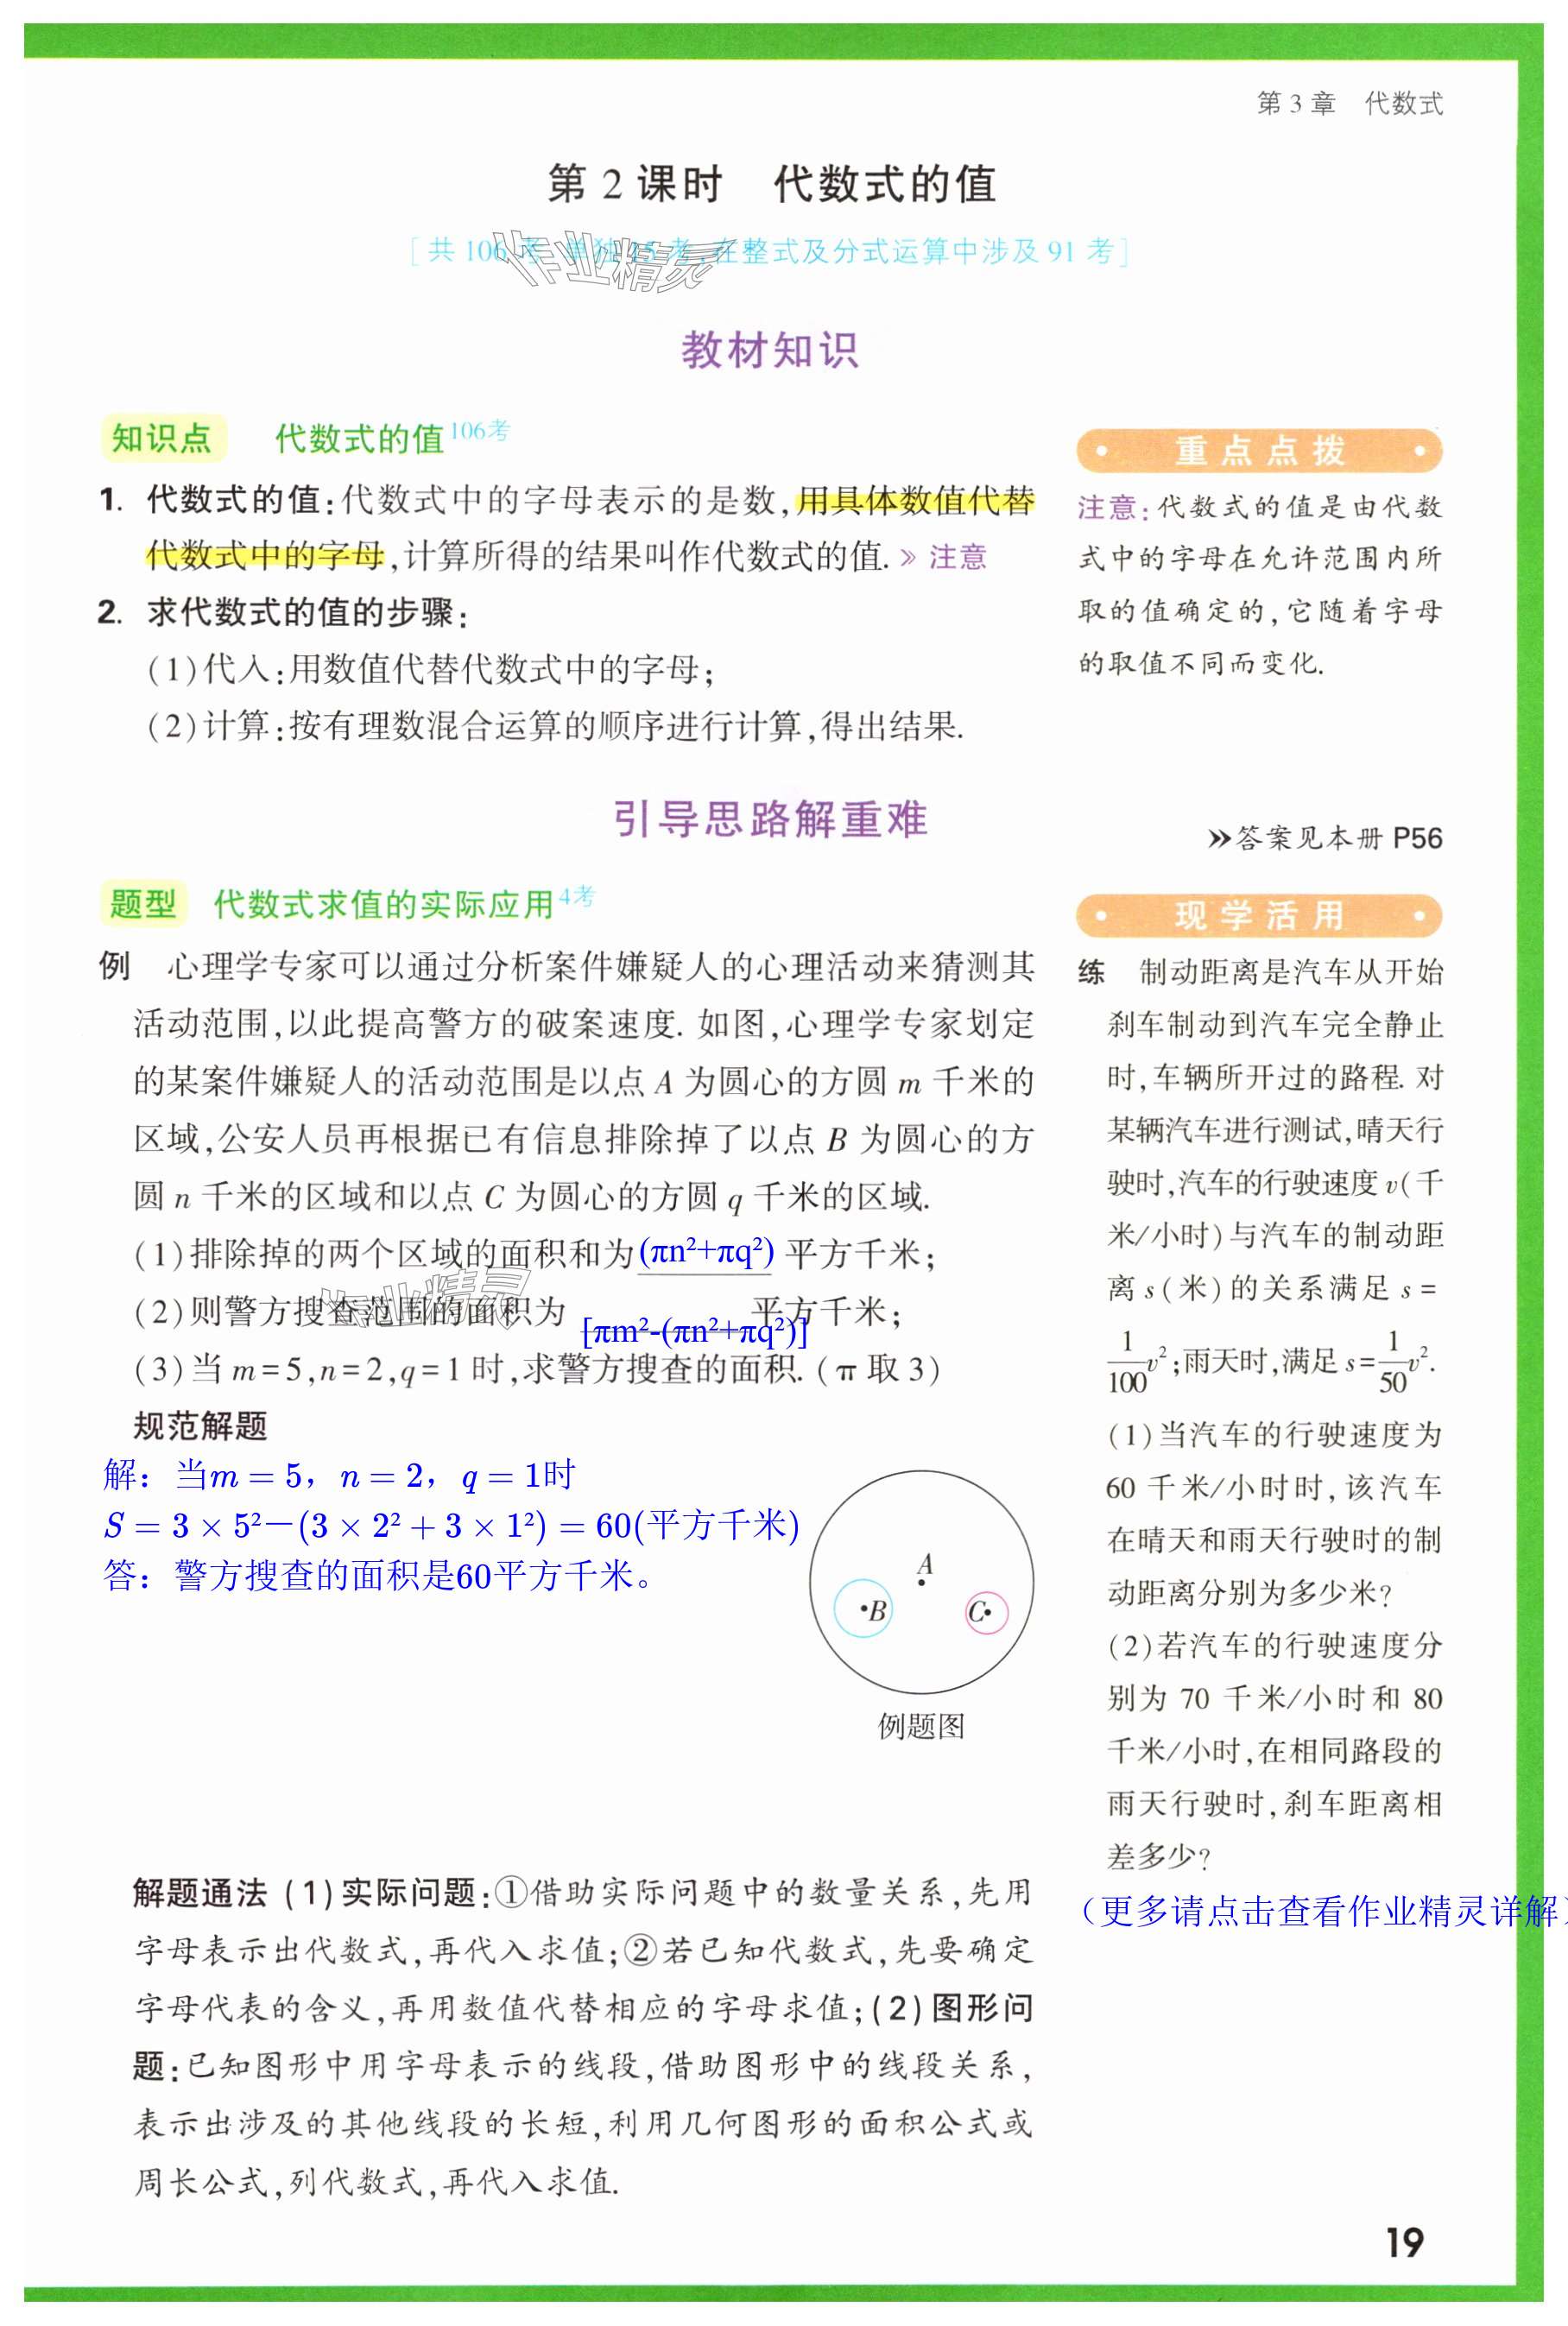 第 3 章 代数式
第 2 课时 代数式的值
[共 106 考,单独 15 考,在整式及分式运算中涉及 91 考]
作业精灵
教材知识
知识点 代数式的值106考
1. 代数式的值:代数式中的字母表示的是数,用具体数值代替
代数式中的字母,计算所得的结果叫作代数式的值. » 注意
2. 求代数式的值的步骤:
(1)代入:用数值代替代数式中的字母;
(2)计算:按有理数混合运算的顺序进行计算,得出结果.
重点点拨
注意:代数式的值是由代数
式中的字母在允许范围内所
取的值确定的,它随着字母
的取值不同而变化.
引导思路解重难
»答案见本册 P56
题型 代数式求值的实际应用4考
例 心理学专家可以通过分析案件嫌疑人的心理活动来猜测其
活动范围,以此提高警方的破案速度. 如图,心理学专家划定
的某案件嫌疑人的活动范围是以点 A 为圆心的方圆 m 千米的
区域,公安人员再根据已有信息排除掉了以点 B 为圆心的方
圆 n 千米的区域和以点 C 为圆心的方圆 q 千米的区域.
(1)排除掉的两个区域的面积和为(πn²+πq²) 平方千米;
(2)则警方搜查范围的面积为 [πm²-(πn²+πq²)] 平方千米;
作业精灵
(3)当 m=5,n=2,q=1 时,求警方搜查的面积. (π 取 3)
规范解题
解：当m = 5，n = 2，q = 1时
S = 3 × 5²−(3 × 2² + 3 × 1²) = 60(平方千米)
答：警方搜查的面积是60平方千米。
A
B
C
例题图
解题通法 (1)实际问题:①借助实际问题中的数量关系,先用
字母表示出代数式,再代入求值;②若已知代数式,先要确定
字母代表的含义,再用数值代替相应的字母求值;(2)图形问
题:已知图形中用字母表示的线段,借助图形中的线段关系,
表示出涉及的其他线段的长短,利用几何图形的面积公式或
周长公式,列代数式,再代入求值.
现学活用
练 制动距离是汽车从开始
刹车制动到汽车完全静止
时,车辆所开过的路程. 对
某辆汽车进行测试,晴天行
驶时,汽车的行驶速度 v(千
米/小时)与汽车的制动距
离 s(米)的关系满足 s =
1/100 v²;雨天时,满足 s=1/50 v².
(1)当汽车的行驶速度为
60 千米/小时时,该汽车
在晴天和雨天行驶时的制
动距离分别为多少米?
(2)若汽车的行驶速度分
别为 70 千米/小时和 80
千米/小时,在相同路段的
雨天行驶时,刹车距离相
差多少?
（更多请点击查看作业精灵详解）
19